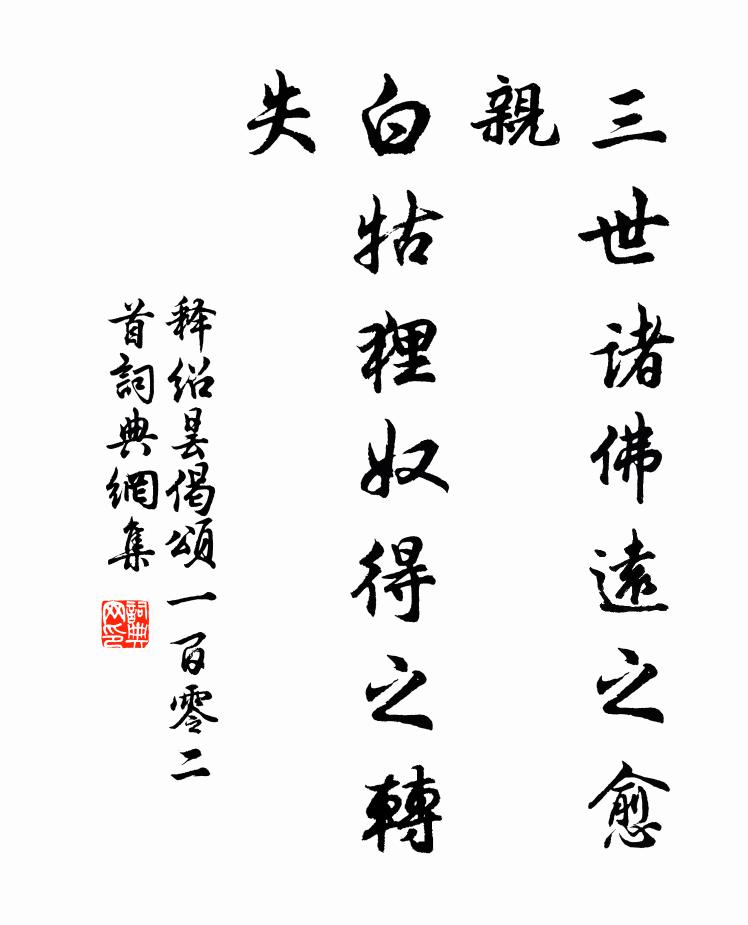 三世诸佛遠之愈
親
白牯狸奴得之轉
失
释绍昙偈頌一百零二
首詞典網集
詞典
网印